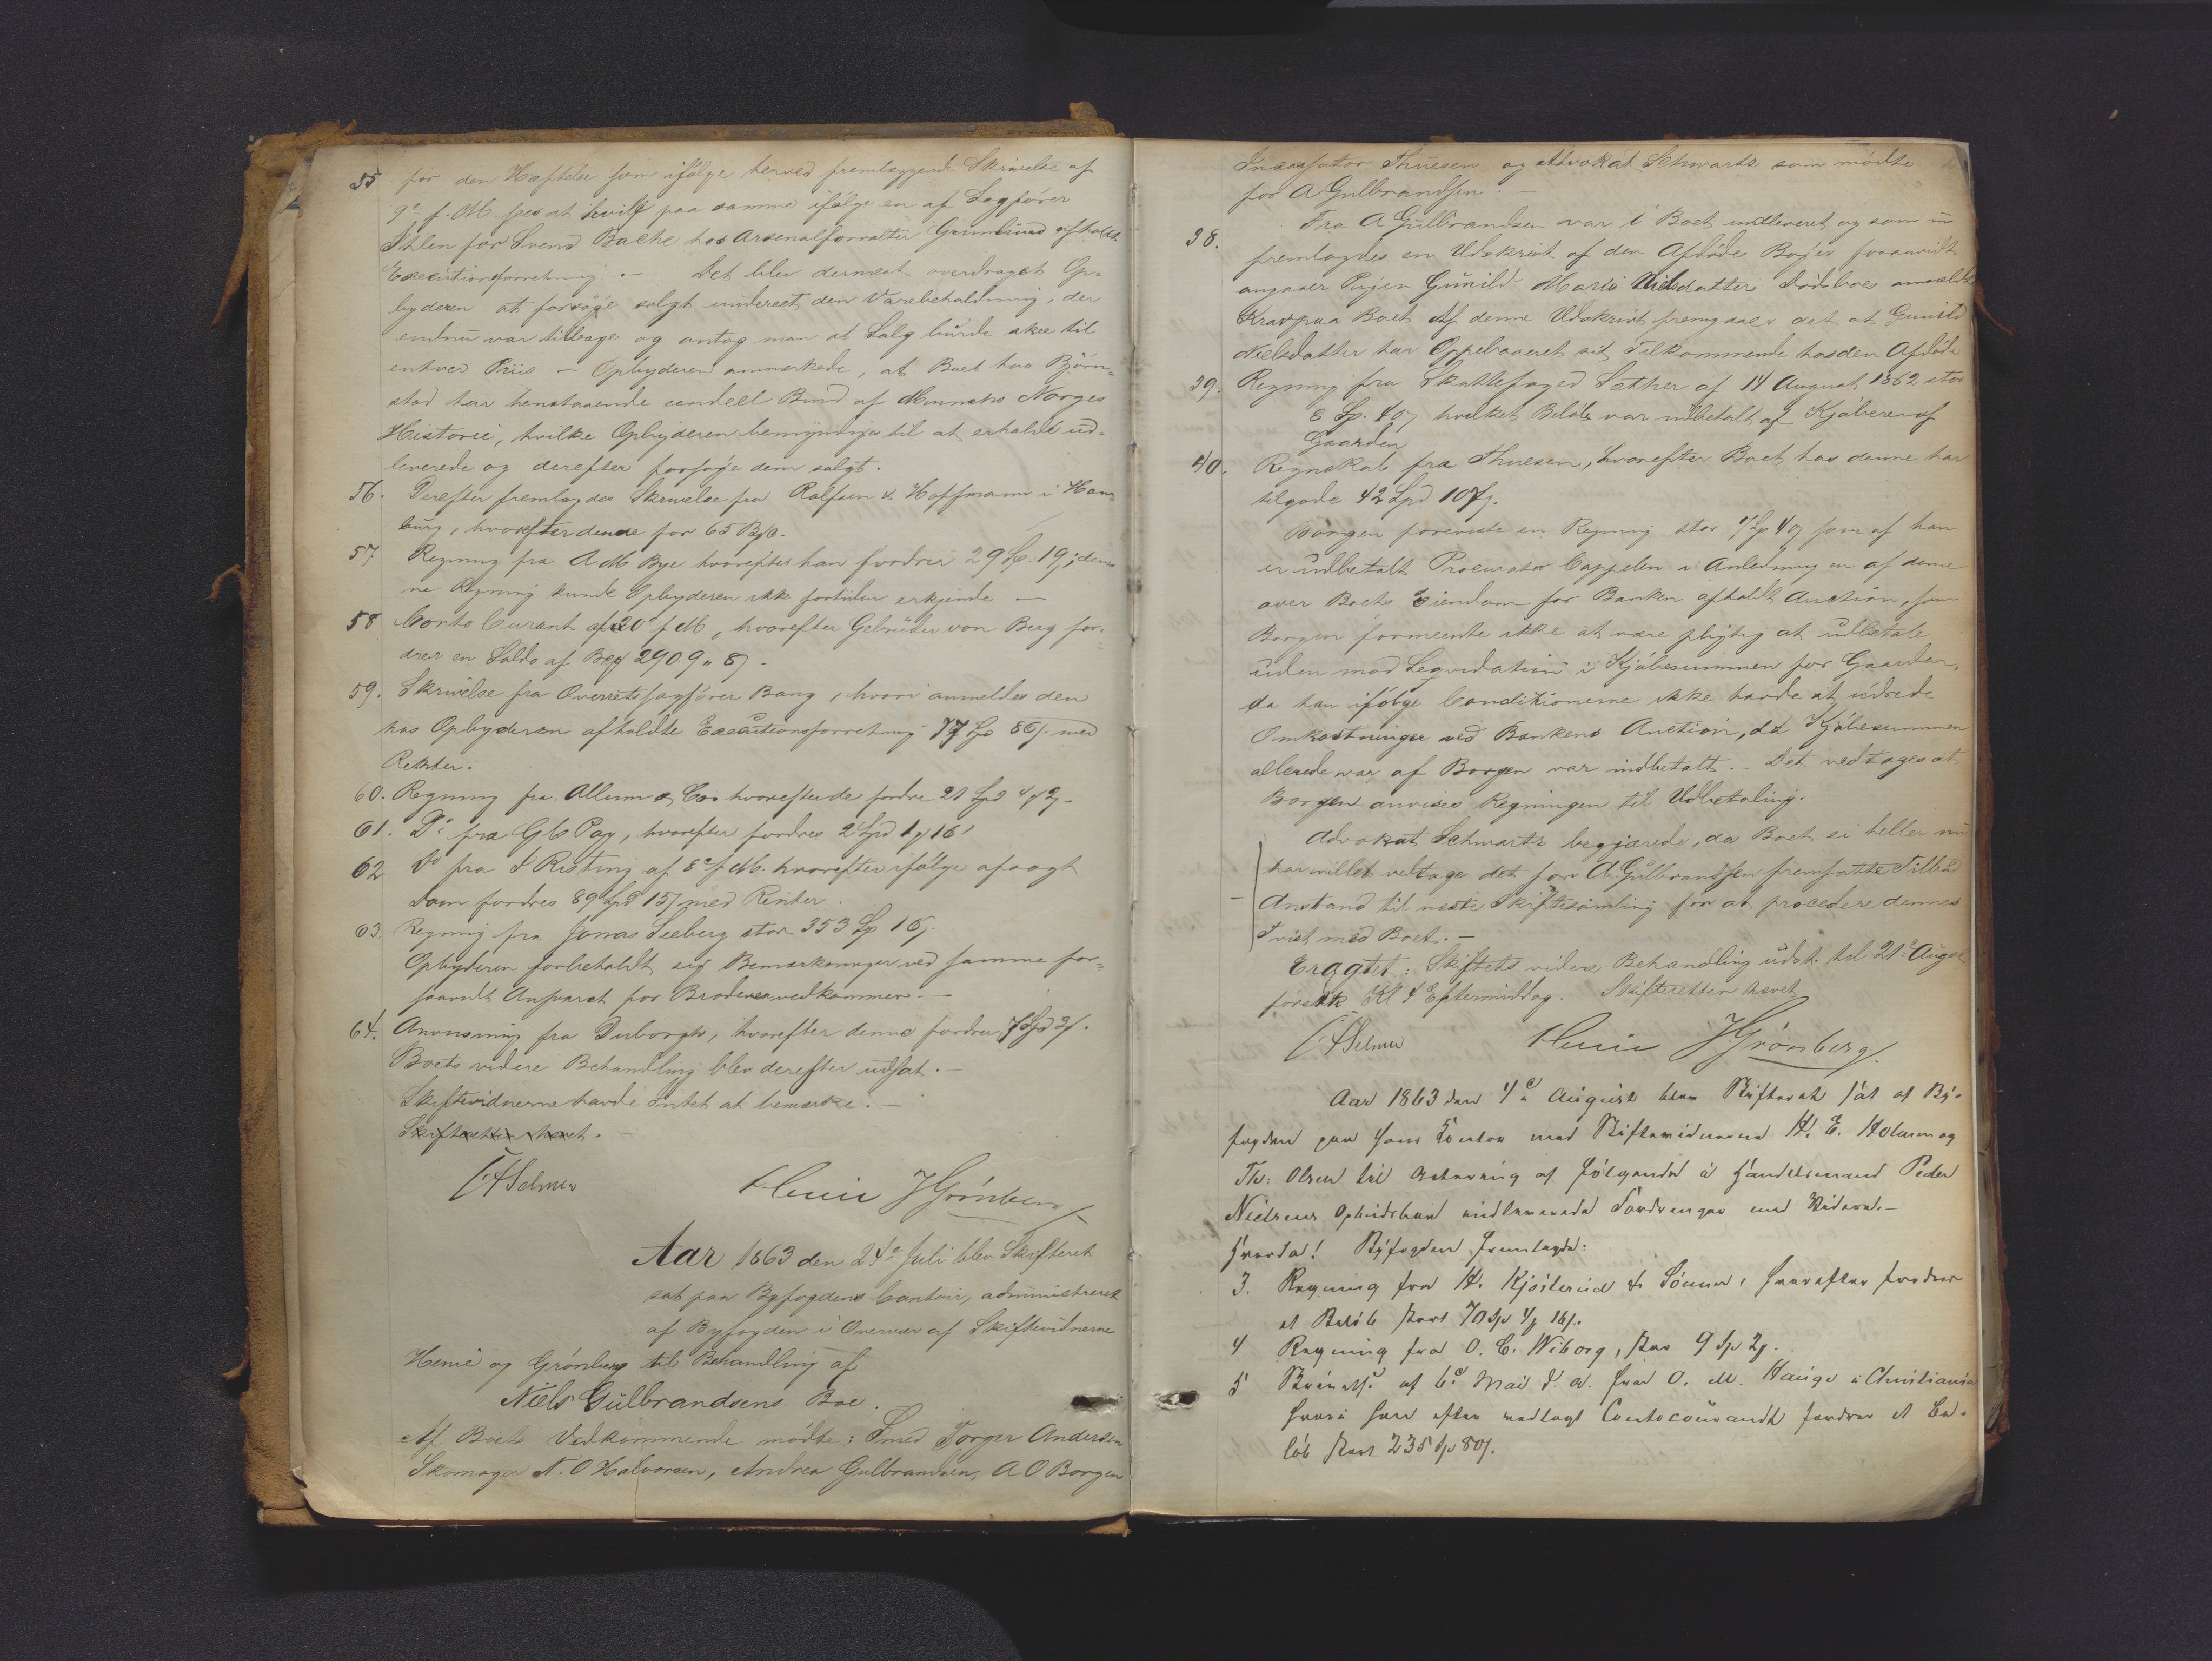 55 for den Hæftelse som ifölge herved fremlæggende Skrivelse af
9de f. M. sees at hvile paa samme ifølge en af Sagförer
Ihlen for Svend Bache hos Arsenalforvalter Grimlund afholdt
Executionsforretning. – Det blev dernæst overdraget Op-
byderen at forsöge solgt underet den Varebeholdning, der
endnu var tilbage og antog man at Salg burde skee til
enhver Priis – Opbyderen anmærkede, at Boet hos Björn-
stad har henstaaende eendeel Bind af Munchs Norges
Historie, hvilke Opbyderen bemyndiges til at erholde ud-
leverede og derefter forsöge dem solgt.
56. Derefter fremlagdes Skrivelse fra Rolfsen & Hoffmann i Ham-
burg, hvorefter dende for 65 Bco.
57 Regning fra A M Bye hvorefter han fordrer 29 Sp. 19; den-
ne Regning kunde Opbyderen ikke fortiden erkjende –
58 Conto Curant af 20de f M, hvorefter Gebrüder von Berg for-
drer en Saldo af 2909 " 8.
59. Skrivelse fra Overretssagförer Bang, hvori anmeldes den
hos Opbyderen afholdte Executionsforretning 77 Sp 86 med
Renter.
60. Regning fra Allum & Co. hvorefter de fordre 21 Spd 4 2.
61. Do fra G C Pay, hvorefter fordres 2 Spd 1 16
62 Do fra I Risting af 8de f M. hvorefter ifölge afsagt
Dom fordres 89 Spd 15 med Renter.
63. Regning fra Jonas Seeberg stor 353 Sp 16
Opbyderen forbeholdt sig Bemærkninger ved samme for-
saavidt Ansvaret for Broderen vedkommer. –
64. Anvisning fra Duborgh, hvorefter denne fordrer 7 Spd 3.
Boets videre Behandling blev derefter udsat. –
Skiftevidnerne havde Intet at bemærke. –
Skifteretten hævet. –
CASelmer Henie JGrönberg
Aar 1863 den 24de Juli blev Skifteret
sat paa Byfogdens Contoir, administreret
af Byfogden i Overvær af Skiftevidnerne
Henie og Grönberg til Behandling af
Niels Gulbrandsens Boe.
Af Boets Vedkommende mödte: Smed Torger Andersen
Skomager N. O Halvorsen, Andrea Gulbrandsen, A O Borgen
Incassator Thuesen og Advokat Schwartz som mödte
for A Gulbrandsen. –
38. Fra A Gulbrandsen var i Boet indleveret og som nu
fremlagdes en Udskrivt af den Afdödes Böger forsaavidt
angaaer Pigen Gunild Maria Nielsdatter Dödsboes anmeldte
Krav paa Boet. Af denne Udskrivt fremgaaer det at Gunild
Nielsdatter har Oppebaaret sit Tilkommende hos den Afdöde
39. Regning fra Skattefoged Sæther af 14 August 1862 stor
8 Sp. 40 hvilket Belöb var indbetalt af Kjöberen af
Gaarden
40. Regnskab fra Thuesen, hvorefter Boet hos denne har
tilgode 42 Spd 107.
Borgen foreviste en Regning stor 7 Sp 4 som af han
er udbetalt Procurator Cappelen i Anledning en af denne
over Boets Eiendom for Banken afholdt Auction, som
Borgen formeente ikke at være pligtig at udbetale
uden mod Liqvidation i Kjöbesummen for Gaarden,
da han ifölge Conditionerne ikke havde at udrede
Omkostninger ved Bankens Auction, da Kjöbesummen
allerede var af Borgen var indbetalt. – Det vedtoges at
Borgen anvises Regningen til Udbetaling.
Advokat Schwartz begjærede, da Boet ei heller nu
har villet vedtage det for A. Gulbrandsen fremsatte Tilbud
Anstand til næste Skiftesamling for at procedere dennes
Tvist med Boet. –
Eragtet: Skiftets videre Behandling udst. til 21de August
förstk Kl 4 Eftermiddag. Skifteretten hævet
CASelmer Henie JGrönberg.
Aar 1863 den 4de August blev Skifteret sat af By-
fogden paa hans Contor med Skiftevidnerne H. E. Holmen og
Th: Olsen til Modtagelse af fölgende i Handelsmand Peder
Nielsens Opbudsboe indleverede Fordringer med Videre. –
Hvorda! Byfogden fremlagde:
3. Regning fra H. Kjösterud & Sönner, hvorefter fordres
et Belöb stort 70 Sp 4 16.
4 Regning fra O. C. Wiborg, stor 9 Sp 2.
5 Skrivelse af 6de Mai d. A. fra O. M. Hauge i Christiania
hvori han efter vedlagt Contocourandt fordrer et Be-
löb stort 235 Sp 80.